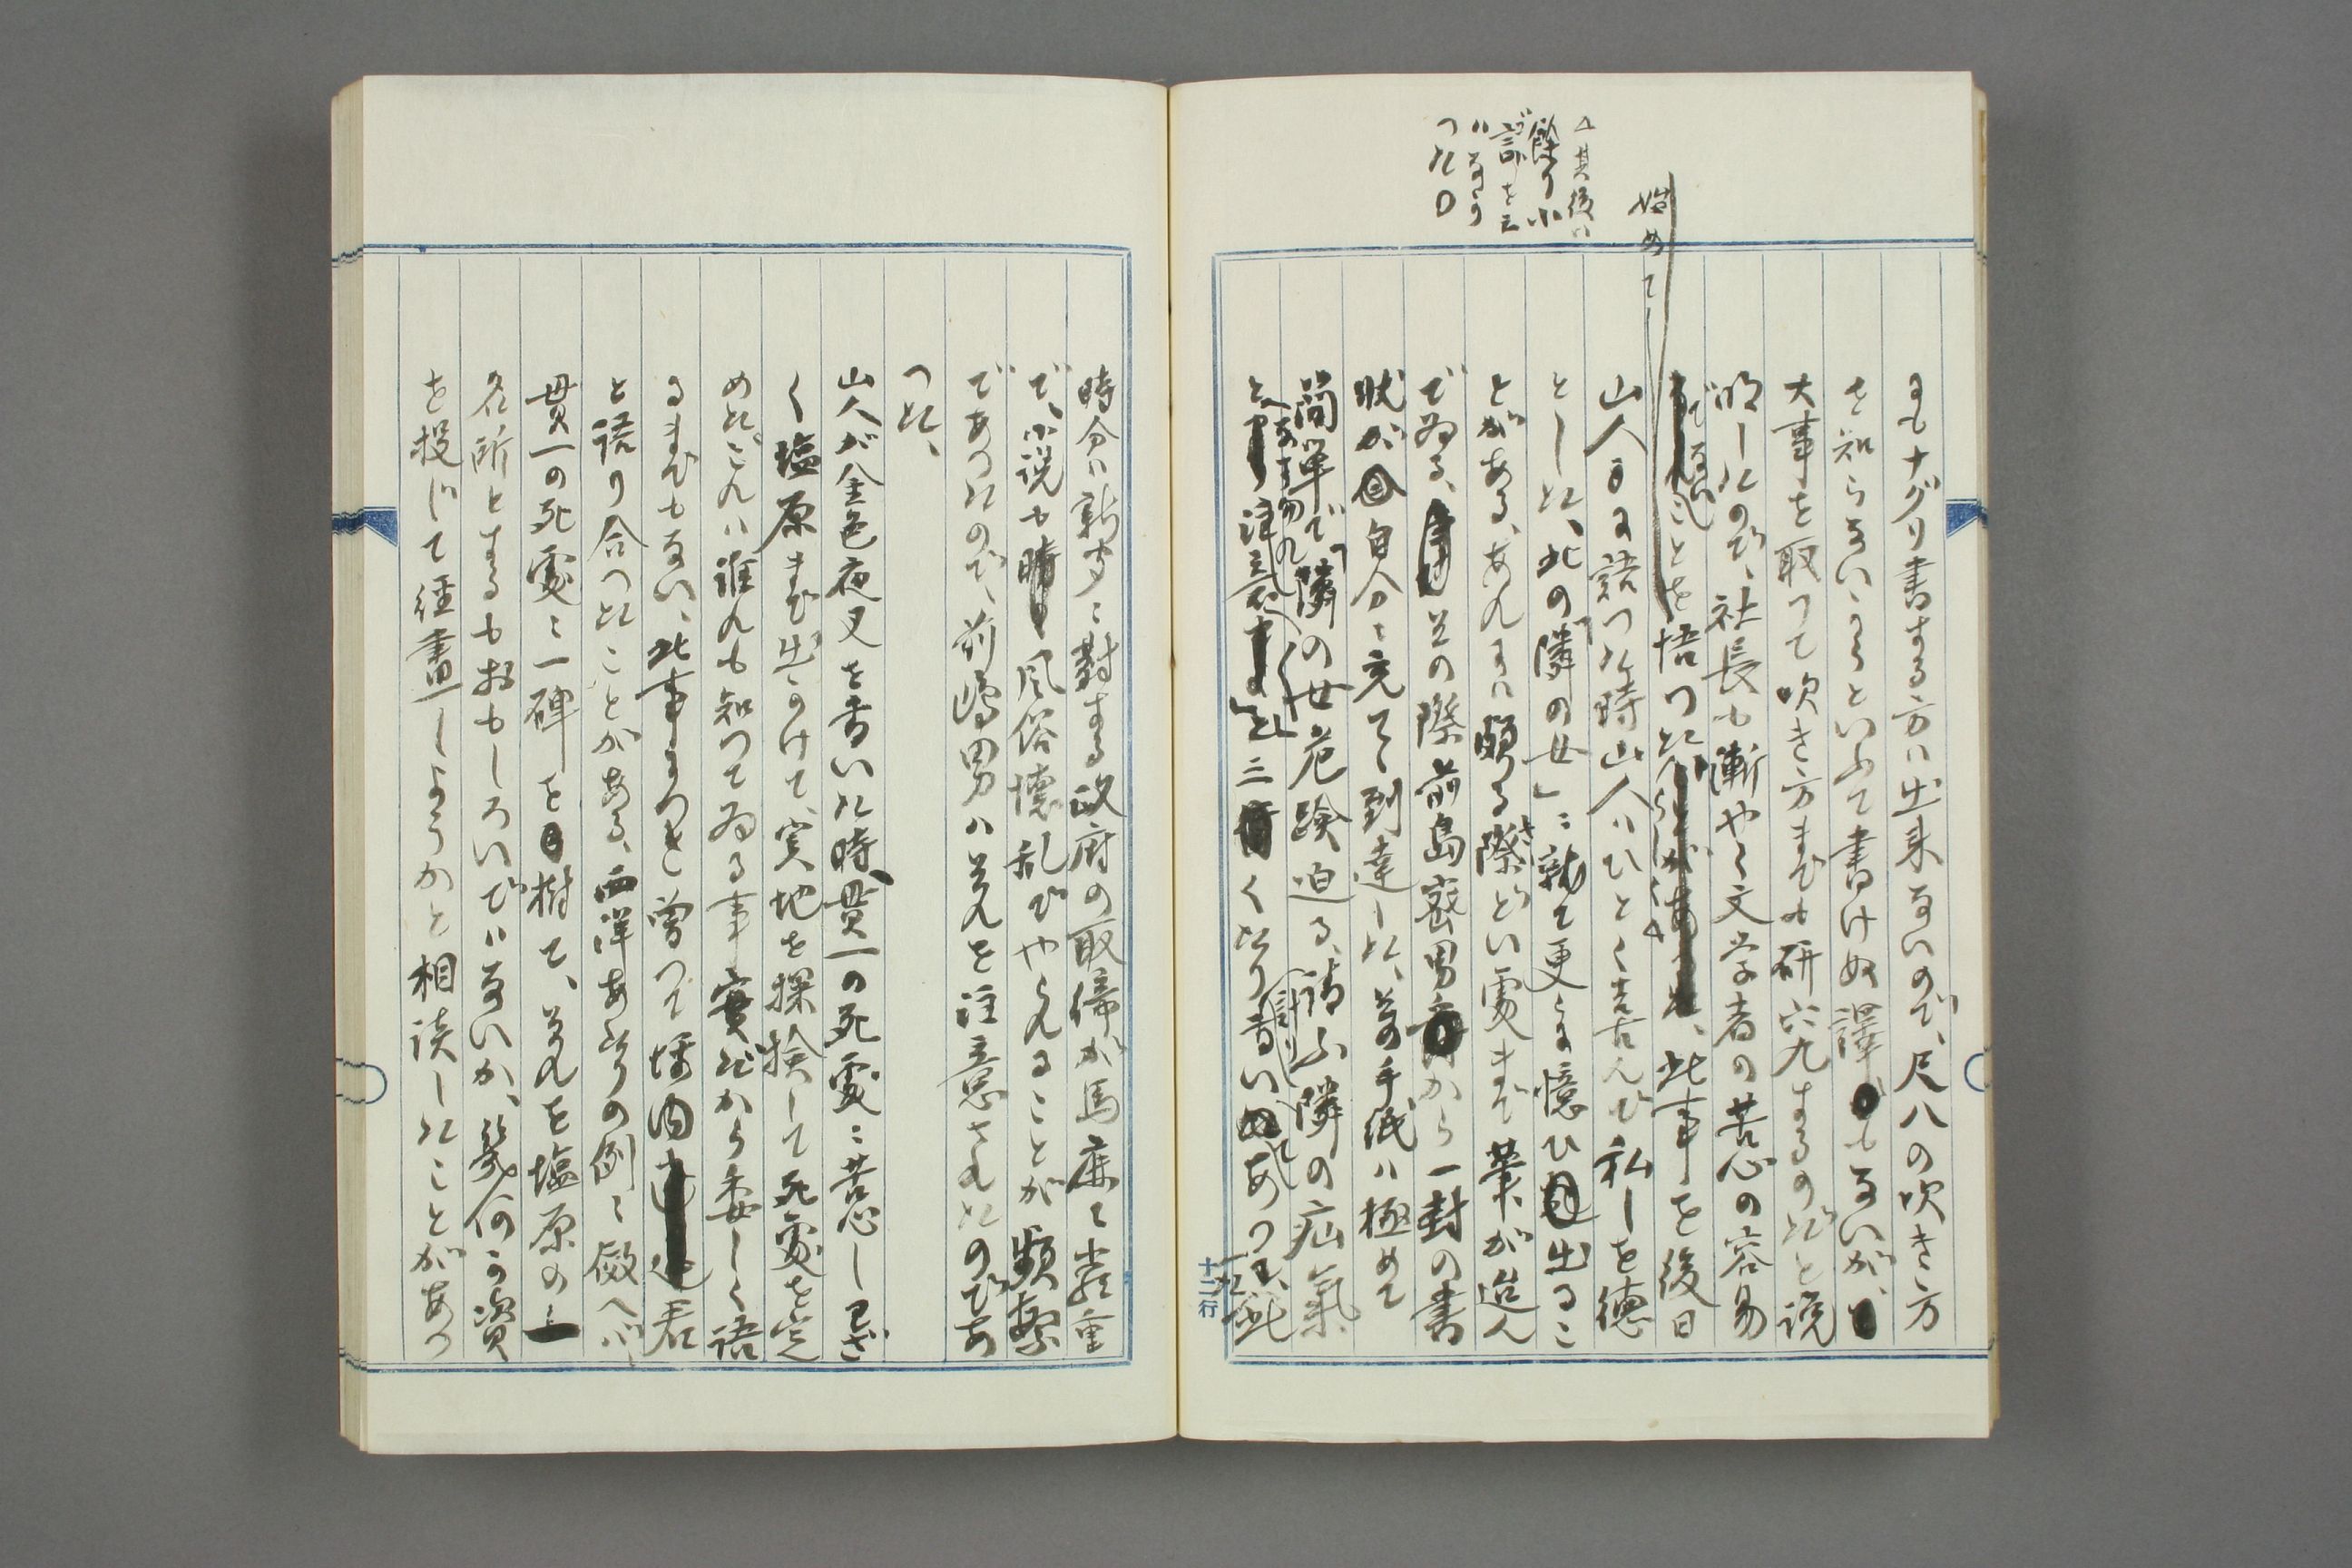 △其後ハ
餘り小
言を云
ハなか
つた○
始めて
もナグリ書する方ハ出来ないので、尺八の吹き方
を知らないからといふて書けぬ譯もないが、
大事を取つて吹き方までも研究するのだと説
明したので、社長も漸やく文学者の苦心の容易
でないことを悟つた、此事を後日
山人に語つた時山人ハひとく喜んで私しを徳
とした、此の「隣の女」に就て更に憶ひ出るこ
とがある、あれまハ頗る際どい處まで筆が進ん
でゐる、其の際前島密男から一封の書
状が自分に充てゝ到達した、其手紙ハ極めて
簡単で「隣の女危険迫る、請ふ隣の疝氣
と注意三くだり書いてあつた、此
十二行
時分ハ新聞に對する政府の取締が馬鹿に嚴重
で、小説も風俗懐乱でやらることが頻繁
であつたので、前嶋男ハそれを注意されたのであ
つた、
山人が金色夜叉を書いた時、貫一の死處に苦心しわざ
く塩原まで出かけて、実地を探検して死處を定
めた、これハ誰れも知つてゐる事實だから委しく語
るまでもない、此事につき曾つて坪内君
と語り合つたことがある、西洋あたりの例に傚へバ、
貫一の死處に一碑を樹て、それを塩原の一
名所とするもおもしろいでハないか、幾何か資
を投じて経畫しようかと相談したことがあつ